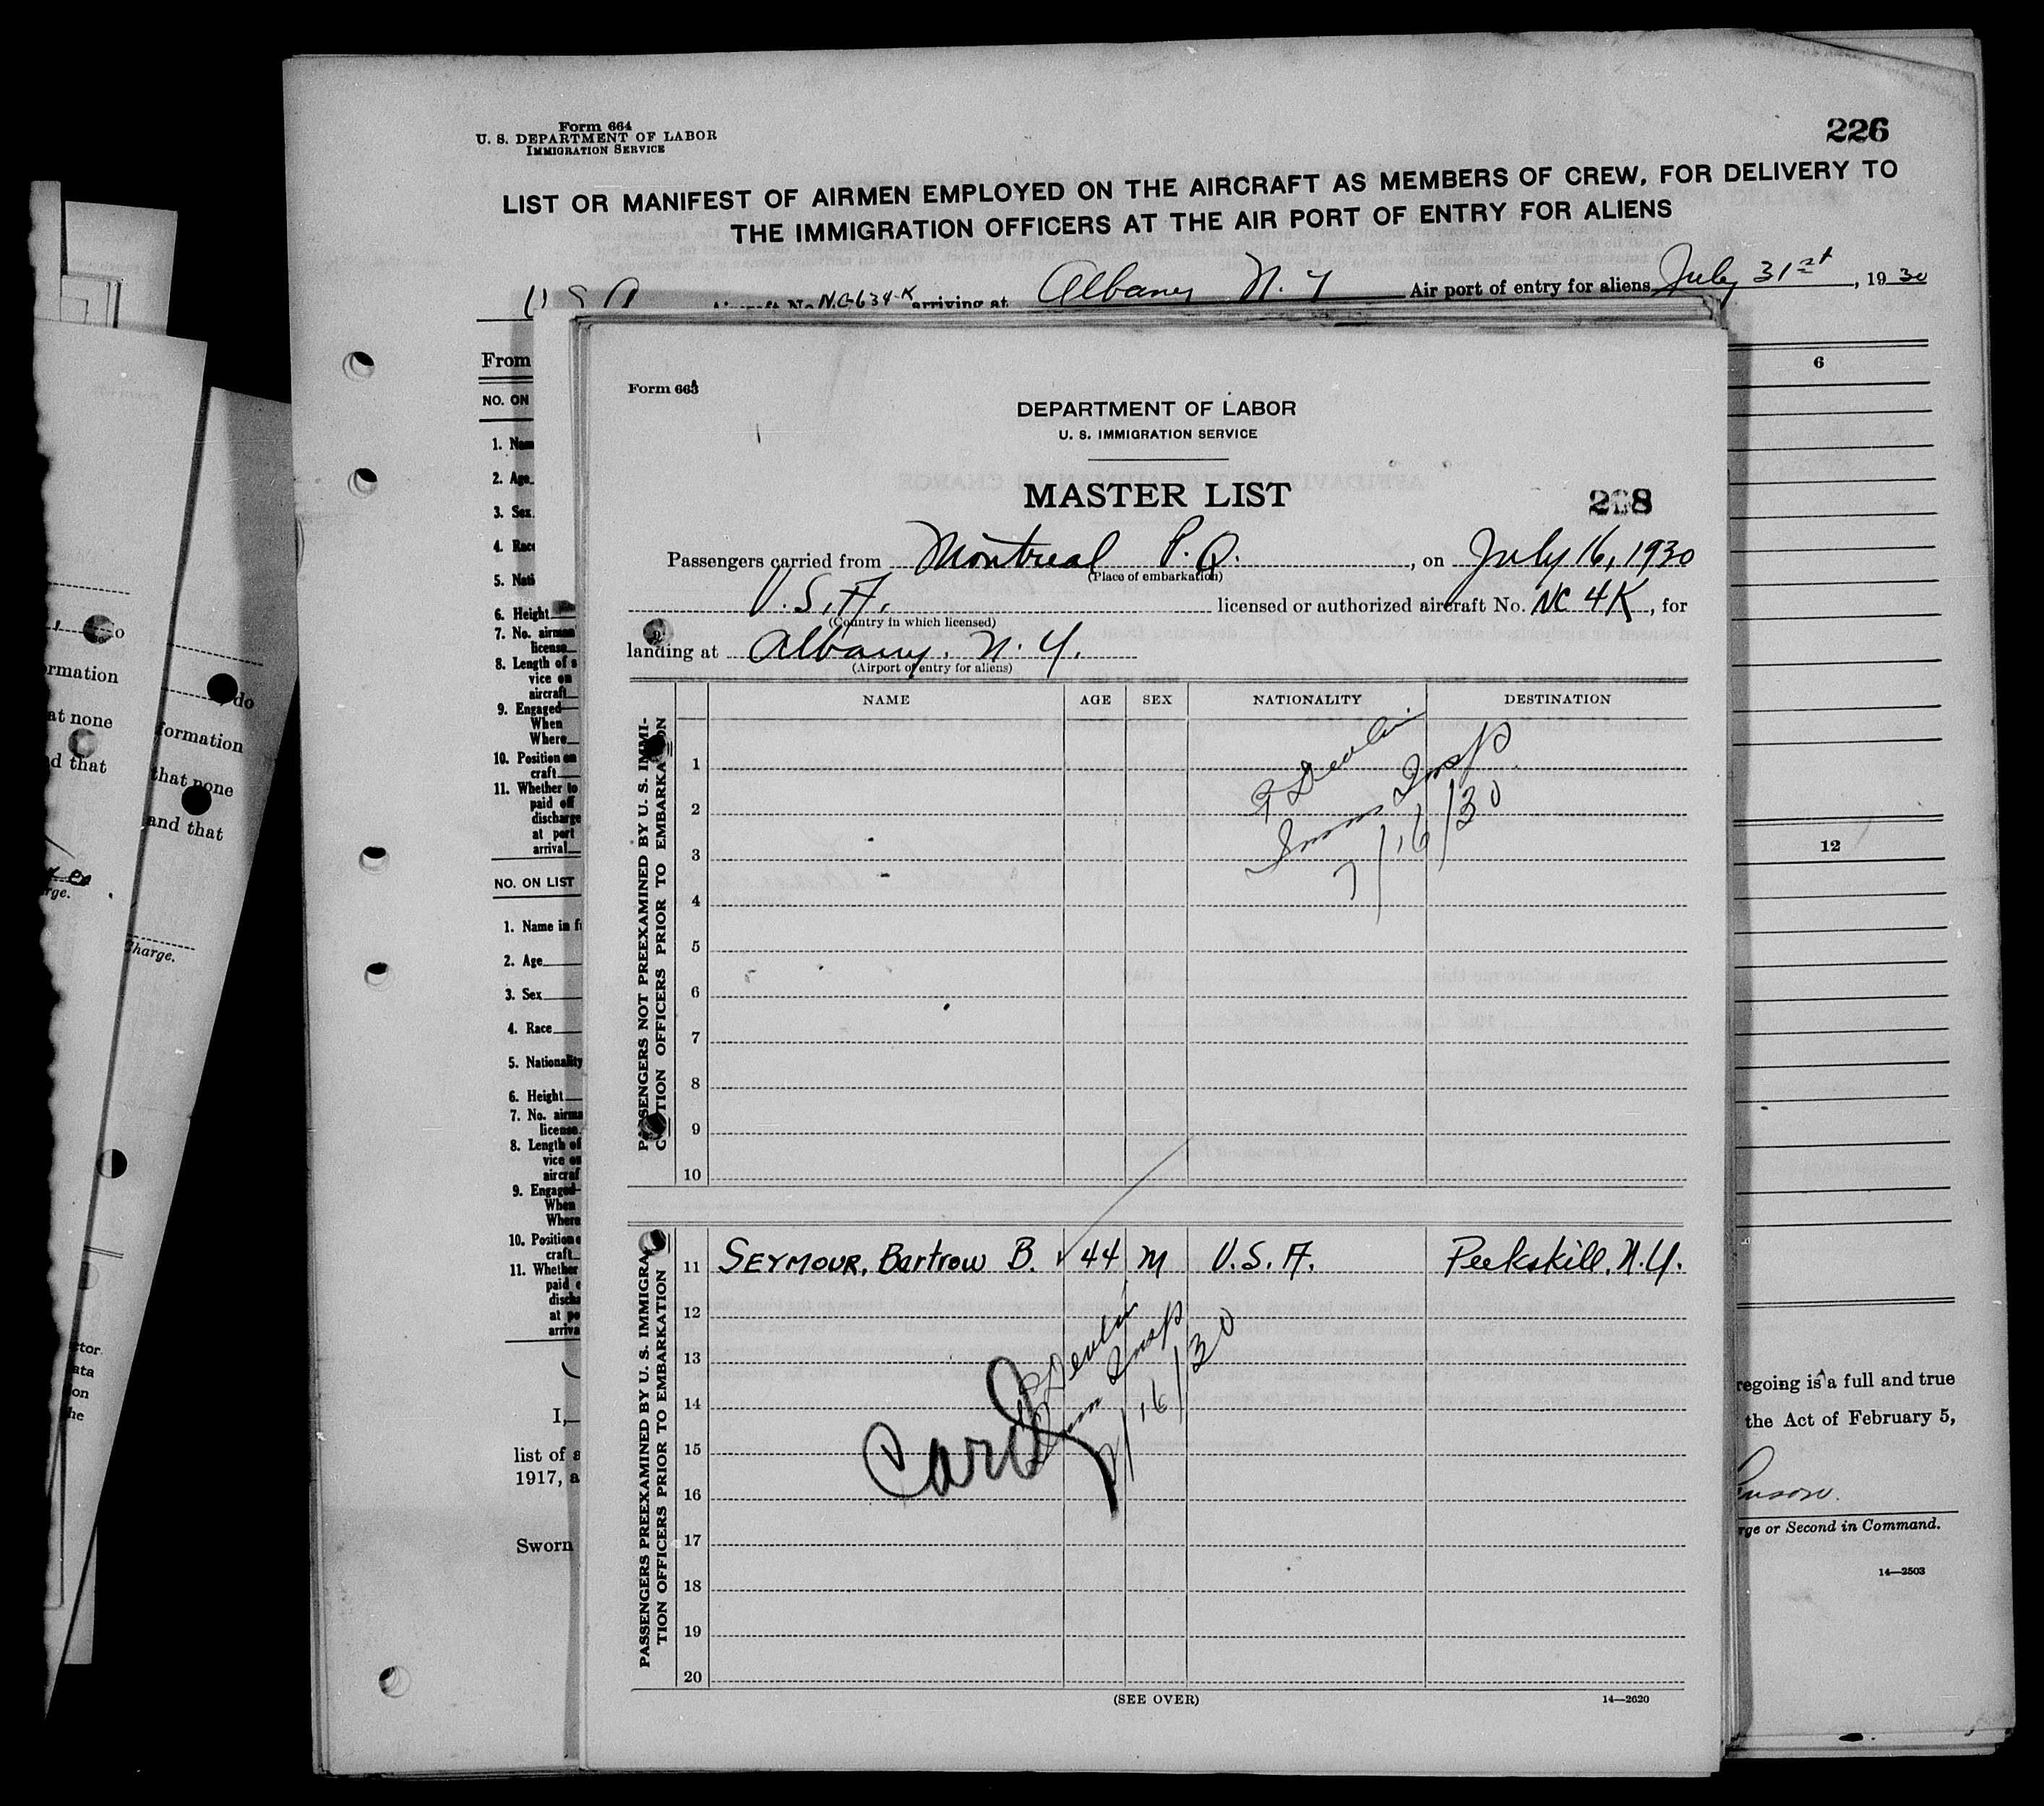 Form 664
U. S. DEPARTMENT OF LABOR
IMMIGRATION SERVICE
226
LIST OR MANIFEST OF AIRMEN EMPLOYED ON THE AIRCRAFT AS MEMBERS OF CREW, FOR DELIVERY TO
THE IMMIGRATION OFFICERS AT THE AIR PORT OF ENTRY FOR ALIENS
U S A Aircraft No N.C-634-K arriving at Albany N. Y Air port of entry for aliens July 31st, 1930
From
6
NO. ON
1. Nam
2. Age
3. Sex
4. Race
5. Nati
6. Height
7. No. airman
license
8. Length of s
vice on
aircraft
9. Engaged—
When
Where
10. Position on
craft
11. Whether to
paid off
discharge
at port
arrival
12
NO. ON LIST
1. Name in f
2. Age
3. Sex
4. Race
5. Nationality
6. Height
7. No. airma
license
8. Length of
vice on
aircraf
9. Engaged—
When
Where
10. Position o
craft
11. Whether
paid o
discha
at po
arriva
I,
list of a
1917, a
Sworn
regoing is a full and true
the Act of February 5,
rge or Second in Command.
14—2503
Form 663
DEPARTMENT OF LABOR
U. S. IMMIGRATION SERVICE
MASTER LIST
268
Passengers carried from Montreal P.Q., on July 16, 1930
(Place of embarkation)
U.S.A. licensed or authorized aircraft No. NC 4K, for
(Country in which licensed)
landing at Albany. N.Y.
(Airport of entry for aliens)
NAME AGE SEX NATIONALITY DESTINATION
PASSENGERS NOT PREEXAMINED BY U. S. IMMI-
GRATION OFFICERS PRIOR TO EMBARKATION
1
2
3
4
5
6
7
8
9
10
Devlin
Imm Insp
7/16/30
PASSENGERS PREEXAMINED BY U. S. IMMIGRA-
TION OFFICERS PRIOR TO EMBARKATION
11 SEYMOUR, Bartrow B. ✓ 44 M U.S.A. Peekskill, N.Y.
12
13
14
15
16
17
18
19
20
Devlin
Imm Insp
7/16/30
Card
(SEE OVER)
14—2620
do
rmation
at none
d that
rge.
do
formation
that none
and that
Charge.
ctor
ata
on
he